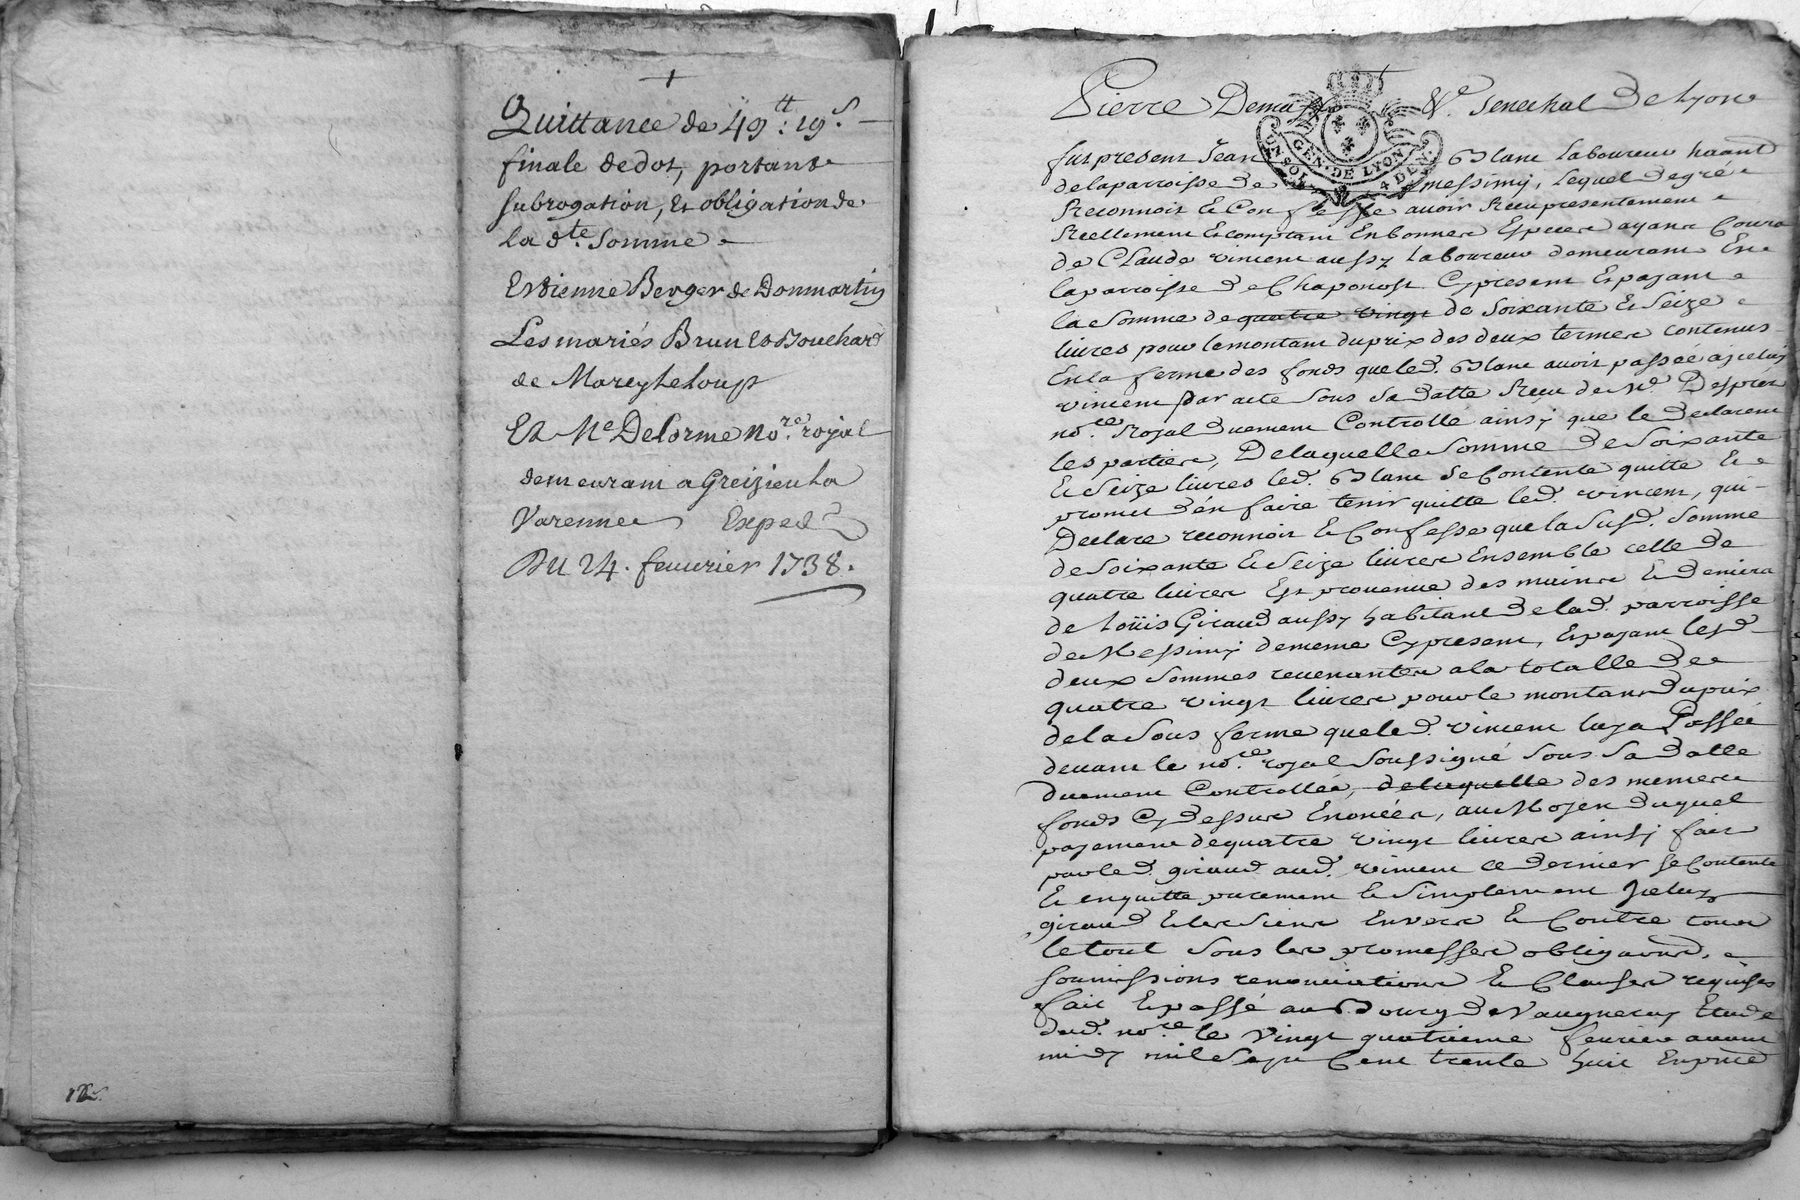 Quittance de 49.tt 19.s
finale de dot, portant
subrogation, et obligation de
la d.te somme
Estienne Berger de Donmartin
Les mariés Brun et Bouchard
de Marcy Le Loup
Et Me Delorme no.re royal
demeurant a Greizieu La
Varenne Exped
Du 24. feuurier 1738.
12s.
Pierre Dema Sr. Senechal de Lyon
GEN. DE LYON
UN SOL 4 DEN.
fut present Jean Blanc laboureur haant
de la parroisse de messimy, lequel de gré
Reconnoit & Confesse auoir Receu presentement
Reellement & comptant En bonnes Especes ayant Cours
de Claude vincent aussy laboureur demeurant En
la parroisse de Chaponost Cy present Et payant
la somme de quatre vingt de soixante & seize
liures pour le montant du prix des deux termes contenus
En la ferme des fonds que led. Blanc auoit passée a jceluy
vincent par acte sous sa datte Receu de Me Desprez
no.re Royal duement Controllé ainsy que le declarent
les parties, De laquelle somme de soixante
& seize liures led. Blanc se Contente quitte &
promet d'en faire tenir quitte led. vincent, qui
Declare reconnoit & Confesse que la susd. somme
de soixante & seize liures Ensemble celle de
quatre liures Est prouenue des mains & deniers
de Loüis Giraud aussy habitant de lad. parroisse
de Messimy de meme Cy present, Et payant lesd.
deux sommes reuenantes a la totalle de
quatre vingt liures pour le montant du prix
de la sous ferme que led. vincent luy a Passée
deuant le no.re royal soussigné sous sa datte
duement Controllée, de laquelle des memes
fonds Cy dessus Enoncés, au Moyen duquel
payement de quatre vingt liures ainsy fait
par led. giraud aud. vincent ce dernier se Contente
& en quitte purement & simplement Jceluy
giraud & les siens Envers & Contre tous
le tout sous les promesses obligaons,
soumissions renonciations & Clauses requises
fait Et passé au Bourg de Vaugneray Etude
dud. no.re le vingt quatrieme feurier auant
midy mil sept Cent trente huit En pnce